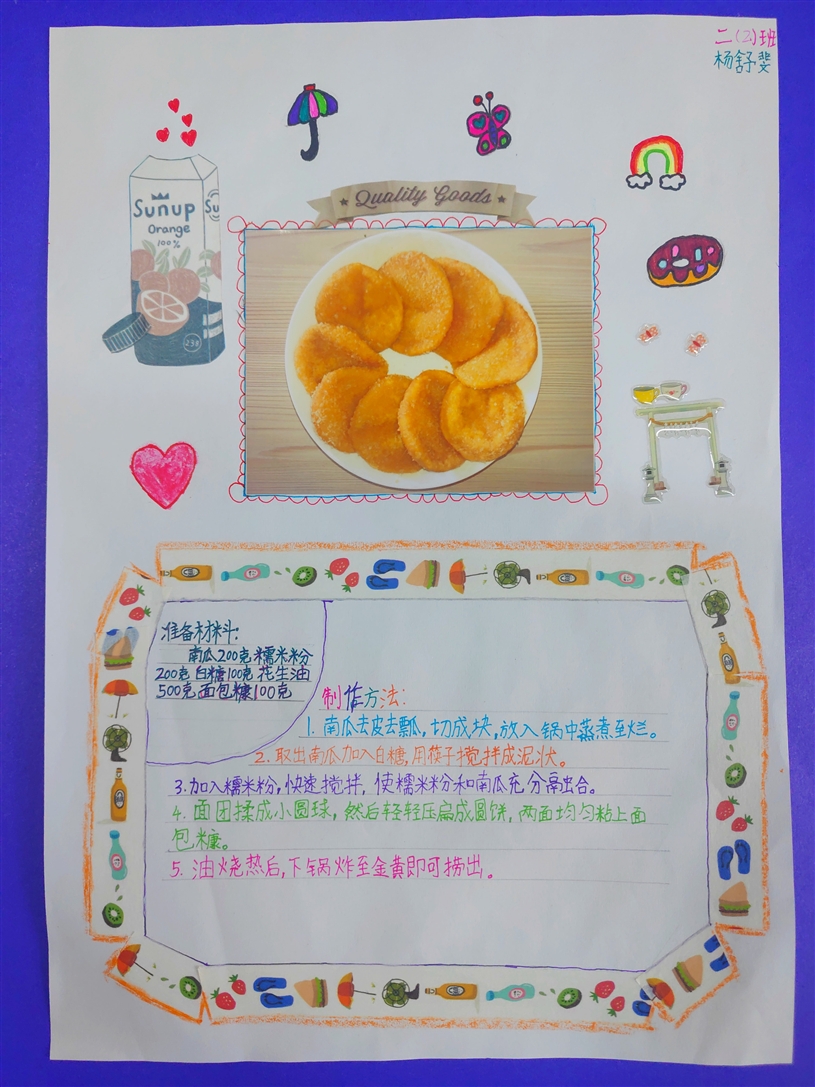 二(2)班
杨舒斐
Quality Goods
Sunup
Su
Orange
100%
233
准备材料:
南瓜200克糯米粉
200克白糖100克花生油
500克面包糠100克
制作方法:
1. 南瓜去皮去瓢,切成块,放入锅中蒸煮至烂。
2. 取出南瓜加入白糖,用筷子搅拌成泥状。
3.加入糯米粉,快速搅拌,使糯米粉和南瓜充分融合。
4. 面团揉成小圆球,然后轻轻压扁成圆饼,两面均匀粘上面
包糠。
5. 油烧热后,下锅炸至金黄即可捞出。